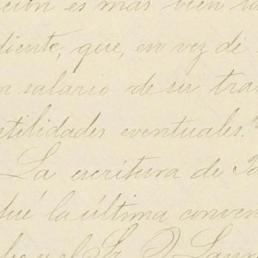 ción es más bien
diente, que, en vez de
salario de su tra
utilidades eventuales."
La escritura de
fué la última conven
y el Sr. D. Laur